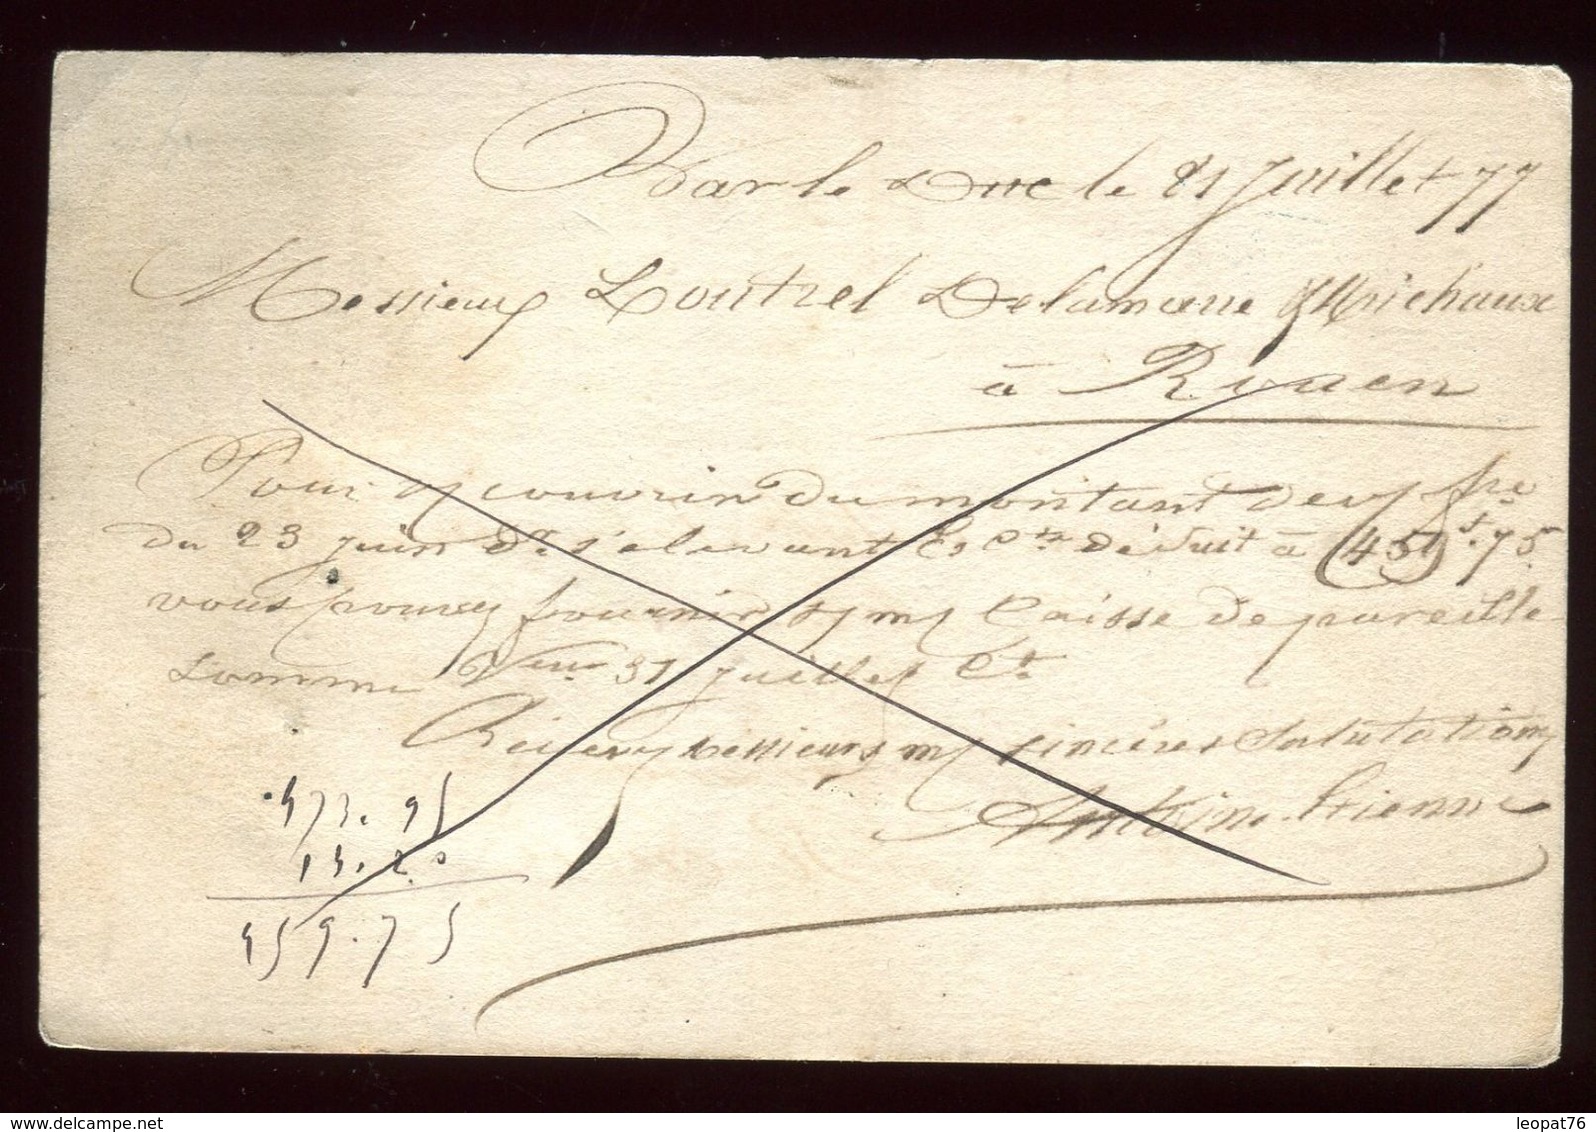 Bar le Duc le 21 Juillet 77
Messieurs Loutrel Delamarre & Michaux
à Rouen
Pour couvrir du montant de vf fre
du 23 juin Dr s'élevant Es cte déduit à 459f.75
vous pouvez fournir s/ ma Caisse de pareille
somme Veur 31 juillet Ct
Recevez Messieurs mes sincères Salutations
Antoine Etienne
473.95
13.20
459.75
www.delcampe.net
leopat76